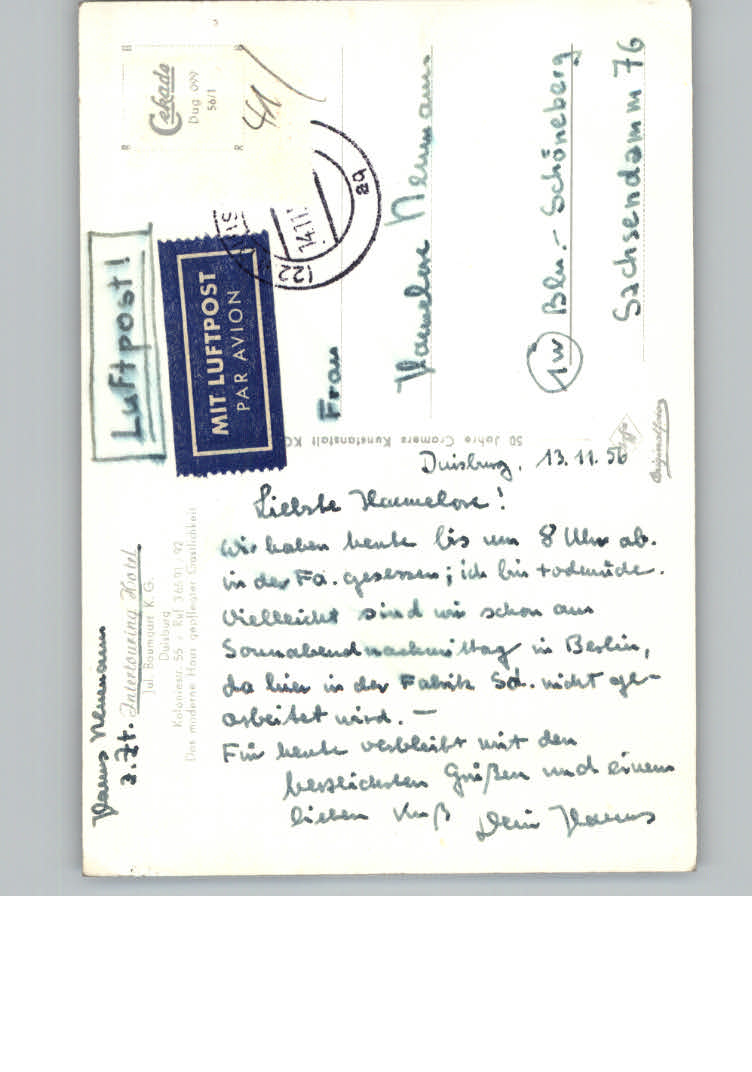 Cekade
Dug 099
56/1
R R
R R
41
(22
14.11.
Luftpost!
MIT LUFTPOST
PAR AVION
Frau
Hannelore Neumann
1 W Bln.- Schöneberg
Sachsendamm 76
50 Jahre Cramers Kunstanstalt KG
Agfa
Originalfoto
Hanns Neumann
z.Zt. Intertouring Hotel
Jul. Baumgart K. G.
Duisburg
Koloniestr. 56 · Ruf 36691 - 92
Das moderne Haus gepflegter Gastlichkeit
Duisburg, 13.11.56
Liebste Hannelore!
Wir haben heute bis um 8 Uhr ab.
in der Fa. gesessen; ich bin todmüde.
Vielleicht sind wir schon am
Sonnabendnachmittag in Berlin,
da hier in der Fabrik Sd. nicht ge-
arbeitet wird. —
Für heute verbleibt mit den
herzlichsten Grüßen und einem
lieben Kuß Dein Hanns